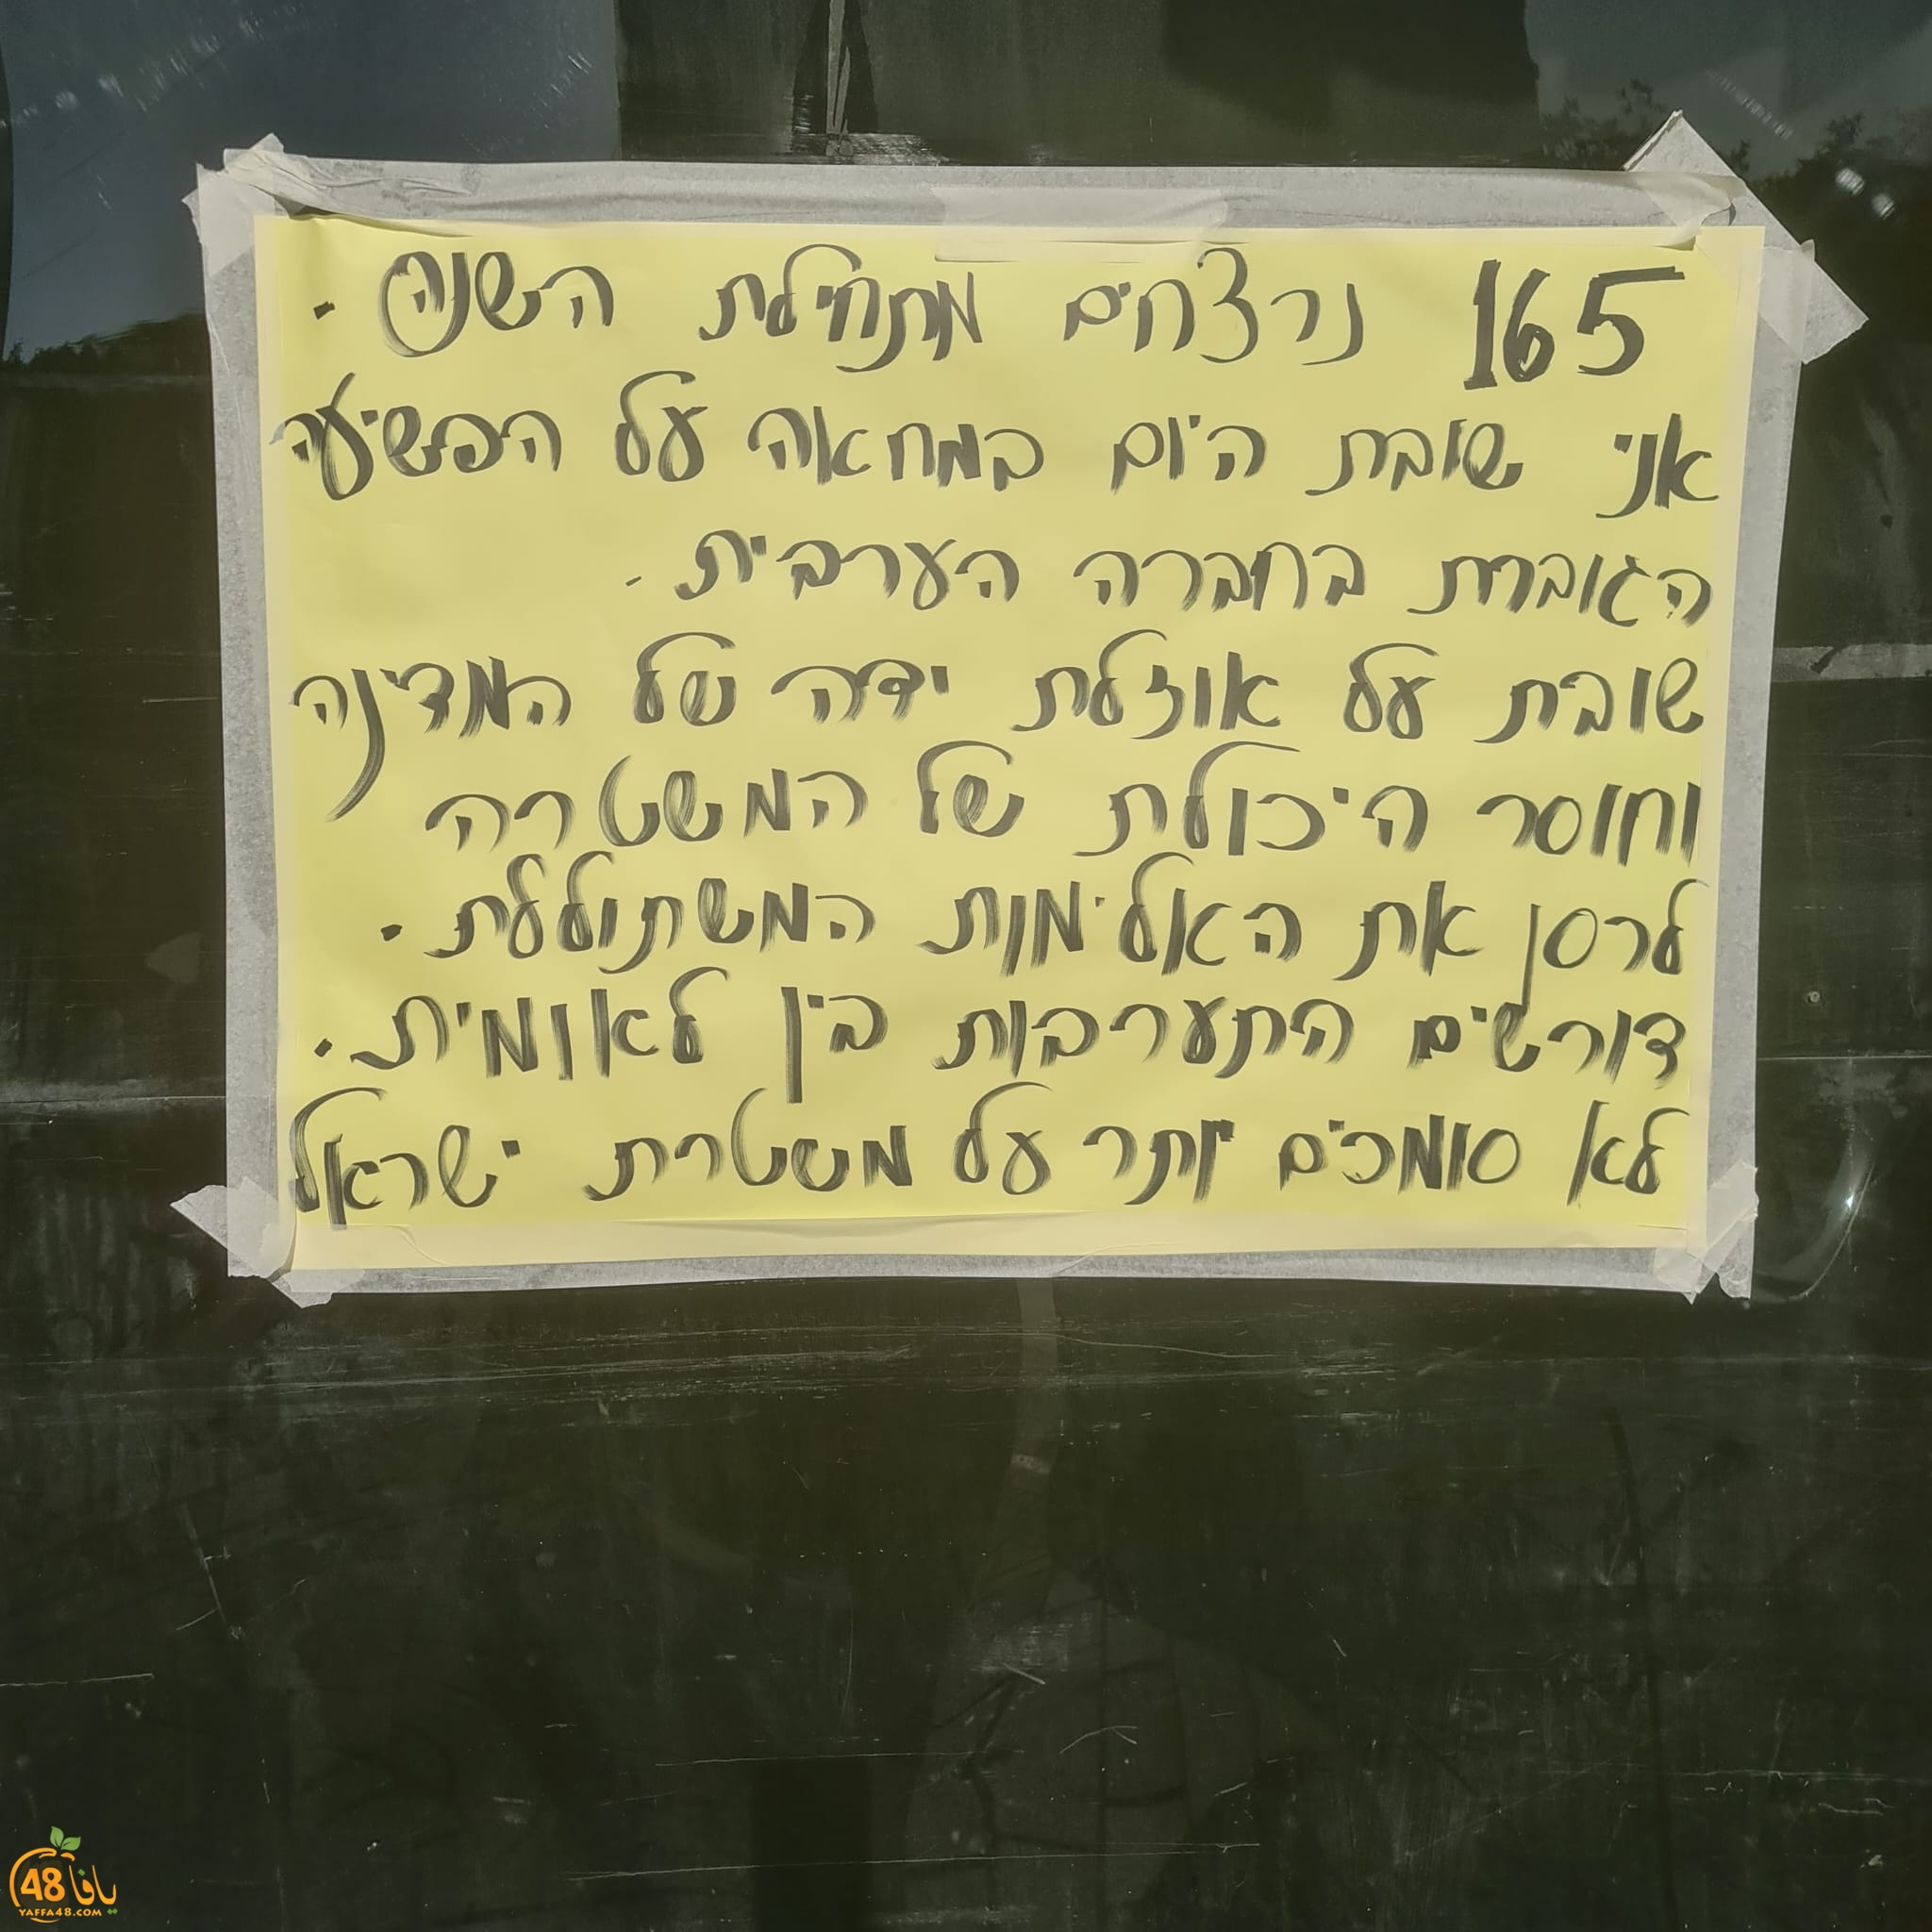 165 נרצחים מתחילת השנה.
אני שובת היום במחאה על הפשיעה
הגוברת בחברה הערבית.
שובת על אוזלת ידה של המדינה
וחוסר היכולת של המשטרה
לרסן את האלימות המשתוללת.
דורשים התערבות בין לאומית.
לא סומכים יותר על משטרת ישראל
يافا 48
YAFFA48.COM